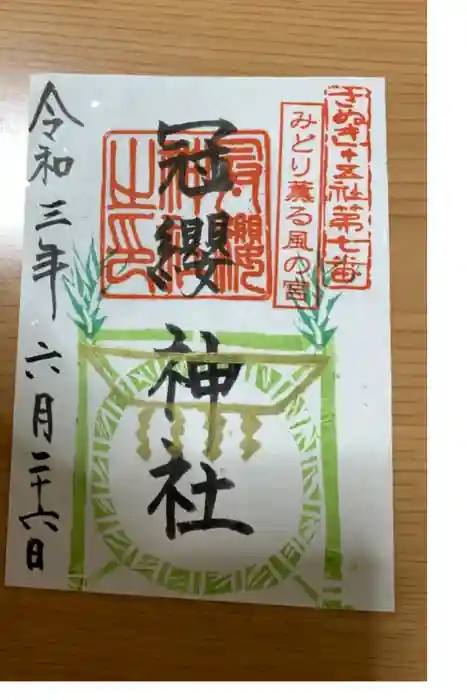 さぬき十五社第七番
みどり薫る風の宮
冠纓神社
冠纓神社之印
令和三年六月二十六日